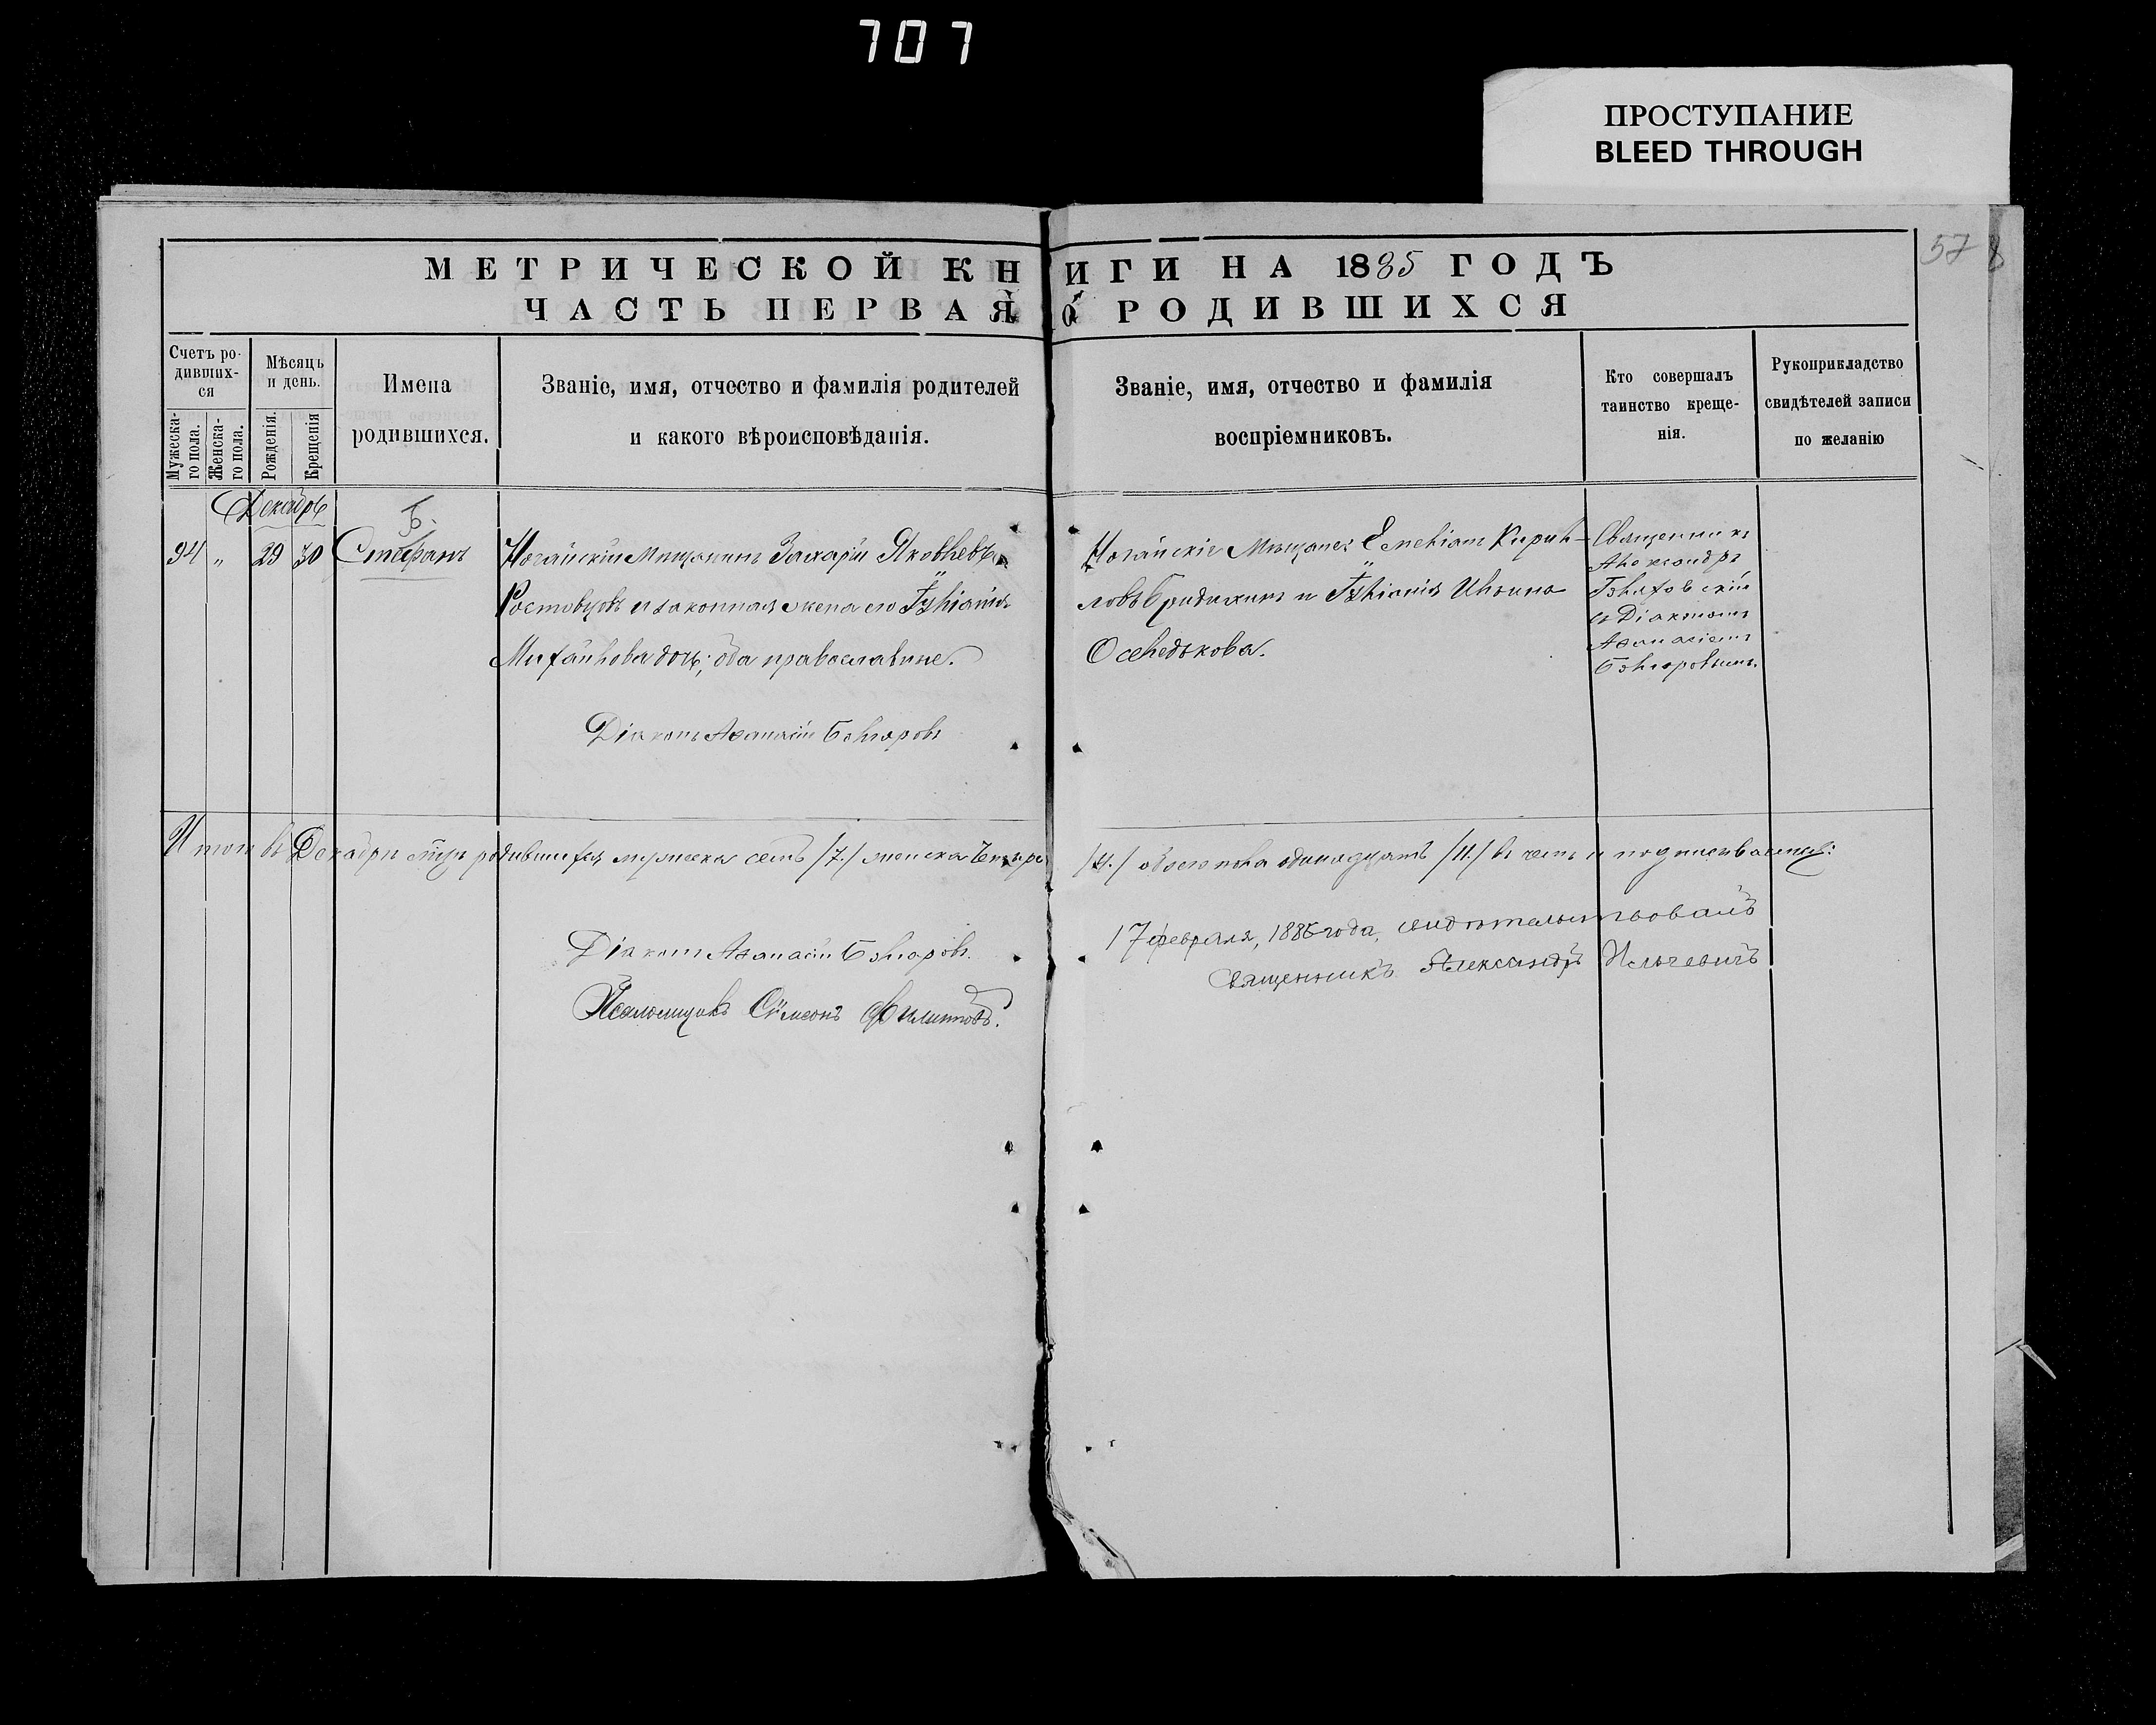 707
ПРОСТУПАНИЕ
BLEED THROUGH
57
МЕТРИЧЕСКОЙ КНИГИ НА 1885 ГОДЪ
ЧАСТЬ ПЕРВАЯ О РОДИВШИХСЯ
Счетъ родившихся
Мужескаго пола.
Женскаго пола.
Мѣсяцъ и день.
Рожденія.
Крещенія
Имена родившихся.
Званіе, имя, отчество и фамилія родителей
и какого вѣроисповѣданія.
Званіе, имя, отчество и фамилія
воспріемниковъ.
Кто совершалъ
таинство креще-
нія.
Рукоприкладство
свидѣтелей записи
по желанію
Декабрь
94 " 29 30 Стефанъ
Ногайскій Мѣщанинъ Захарій Яковлевъ
Ростовцовъ и законная жена его Іуліанія
Михайлова дочь; оба православные.
Діаконъ Аѳанасій
Ногайскіе Мѣщане: Емеліанъ Кирил-
ловъ и Іуліанія
Священникъ
Александръ
съ Діакономъ
Аѳанасіемъ
Итого въ Декабрѣ м-цѣ родившихся мужеска семь /7./ женска четыре /4./ обоего пола одинадцать /11./ въ чемъ и подписываемся:
Діаконъ Аѳанасій
Псаломщикъ Сѵмеонъ Филиповъ.
17 февраля, 1886 года, свидѣтельствовалъ
Священникъ Александръ Ильчевичъ